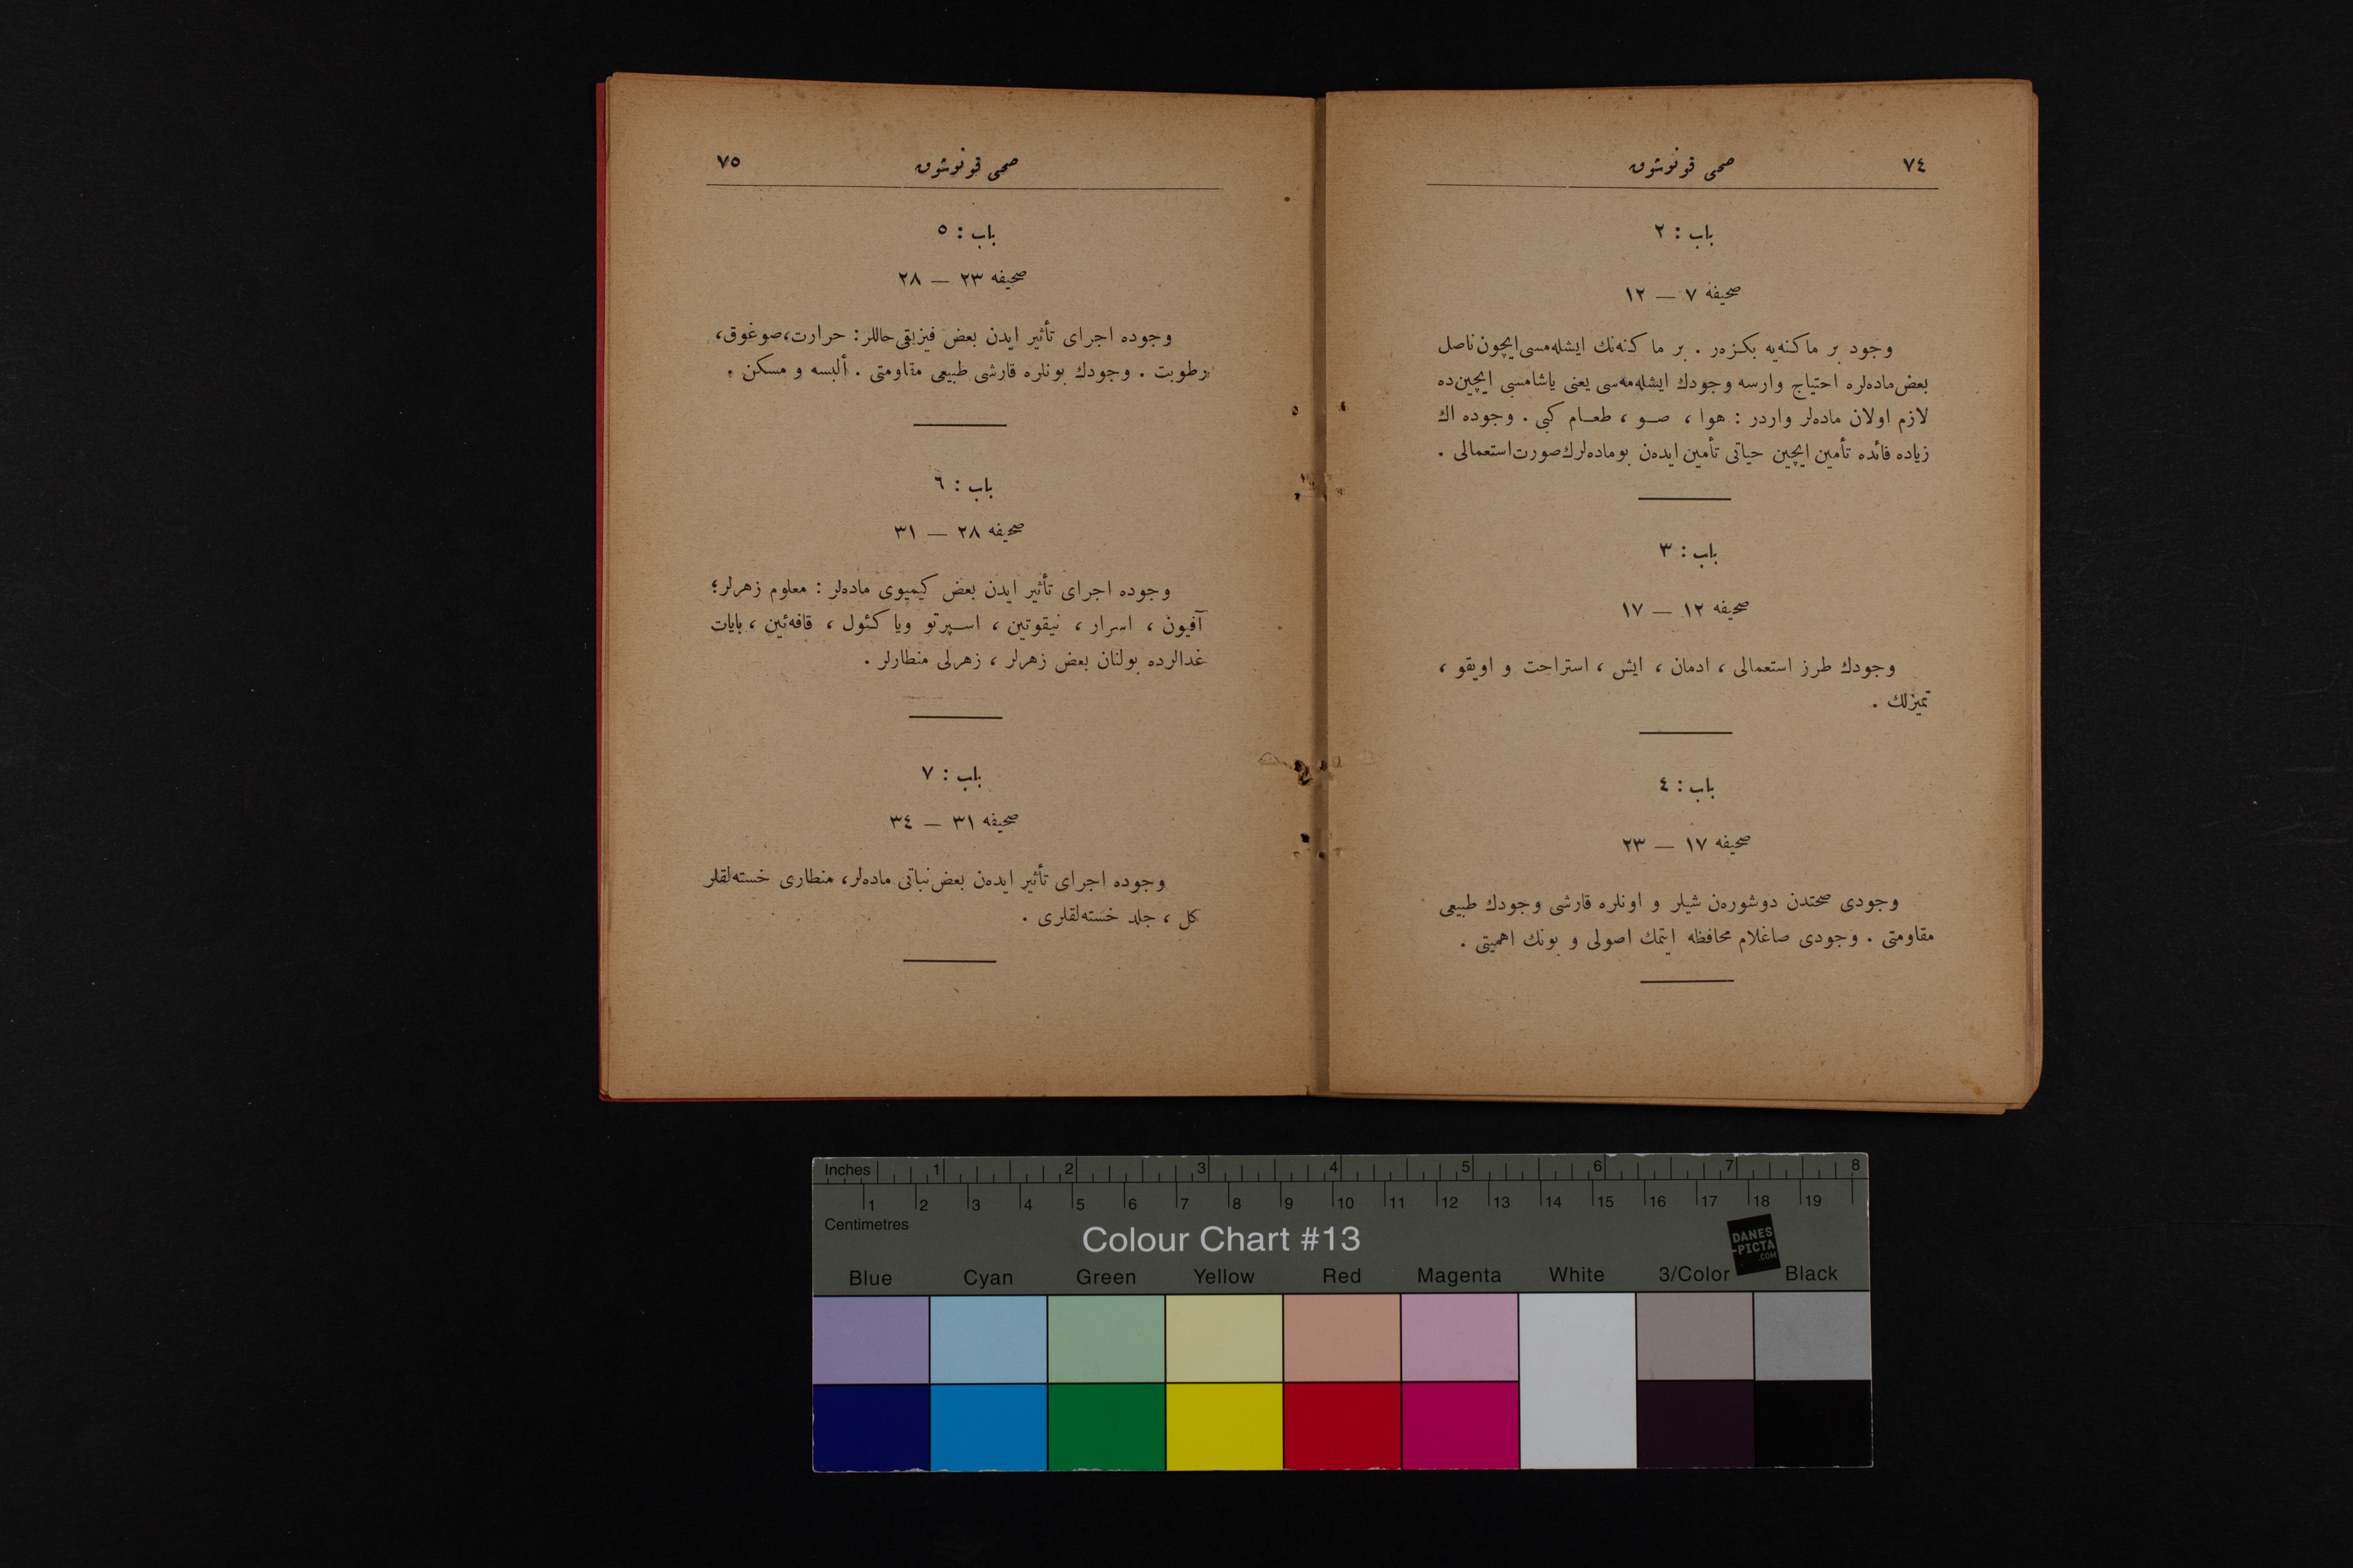 ٧٤
صحی قونوشوق
باب : ٢
صحیفه ٧ — ١٢
وجود بر ماكنه‌یه بكزه‌ر . بر ماكنه‌نك ایشله‌مسی ایچون ناصل
بعض ماده‌لره احتیاج وارسه وجودك ایشله‌مه‌سی یعنی یاشامسی ایچین‌ده
لازم اولان ماده‌لر واردر : هوا ، صو ، طعام كبی . وجوده اك
زیاده فائده تأمین ایچین حیاتی تأمین ایده‌ن بو ماده‌لرك صورت استعمالی .
باب : ٣
صحیفه ١٢ — ١٧
وجودك طرز استعمالی ، ادمان ، ایش ، استراحت و اویقو ،
تمیزلك .
باب : ٤
صحیفه ١٧ — ٢٣
وجودی صحتدن دوشوره‌ن شیلر و اونلره قارشی وجودك طبیعی
مقاومتی . وجودی صاغلام محافظه ایتمك اصولی و بونك اهمیتی .
صحی قونوشوق
٧٥
باب : ٥
صحیفه ٢٣ — ٢٨
وجوده اجرای تأثیر ایدن بعض فیزیقی حاللر : حرارت، صوغوق،
رطوبت . وجودك بونلره قارشی طبیعی مقاومتی . ألبسه و مسكن .
باب : ٦
صحیفه ٢٨ — ٣١
وجوده اجرای تأثیر ایدن بعض كیمیوی ماده‌لر : معلوم زهرلر؛
آفیون ، اسرار ، نیقوتین ، اسپرتو ویا كئول ، قافه‌ئین ، بایات
غدالرده بولنان بعض زهرلر ، زهرلی منطارلر .
باب : ٧
صحیفه ٣١ — ٣٤
وجوده اجرای تأثیر ایده‌ن بعض نباتی ماده‌لر، منطاری خسته‌لقلر
كل ، جلد خسته‌لقلری .
Inches 1 2 3 4 5 6 7 8
1 2 3 4 5 6 7 8 9 10 11 12 13 14 15 16 17 18 19
Centimetres
Colour Chart #13
DANES
-PICTA
.COM
Blue Cyan Green Yellow Red Magenta White 3/Color Black